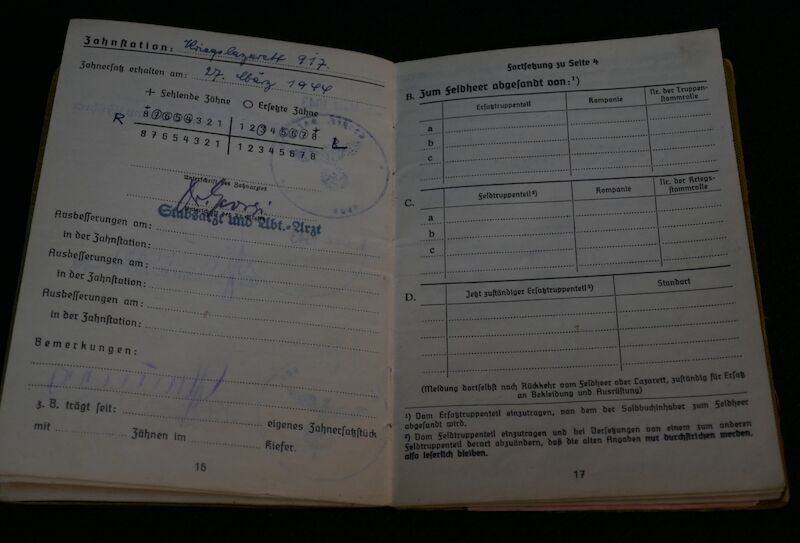 Zahnstation: Kriegslazarett 917.
Zahnersatz erhalten am: 27. März 1944
+ Fehlende Zähne ○ Ersetzte Zähne
R 8 7 6 5 4 3 2 1 1 2 3 4 5 6 7 8 L
8 7 6 5 4 3 2 1 1 2 3 4 5 6 7 8
Unterschrift des Zahnarztes
Stabsarzt und Abt.-Arzt
Ausbesserungen am:
in der Zahnstation:
Ausbesserungen am:
in der Zahnstation:
Ausbesserungen am:
in der Zahnstation:
Bemerkungen:
z. B. trägt seit: eigenes Zahnersatzstück
mit Zähnen im Kiefer.
16
Fortsetzung zu Seite 4
B. Zum Feldheer abgesandt von:¹)
Ersatztruppenteil Kompanie Nr. der Truppen-
stammrolle
a
b
c
C. Feldtruppenteil²) Kompanie Nr. der Kriegs-
stammrolle
a
b
c
D. Jetzt zuständiger Ersatztruppenteil³) Standort
(Meldung dortselbst nach Rückkehr vom Feldheer oder Lazarett, zuständig für Ersatz
an Bekleidung und Ausrüstung)
¹) Vom Ersatztruppenteil einzutragen, von dem der Soldbuchinhaber zum Feldheer
abgesandt wird.
²) Vom Feldtruppenteil einzutragen und bei Versetzungen von einem zum anderen
Feldtruppenteil derart abzuändern, daß die alten Angaben nur durchstrichen werden,
also leserlich bleiben.
17